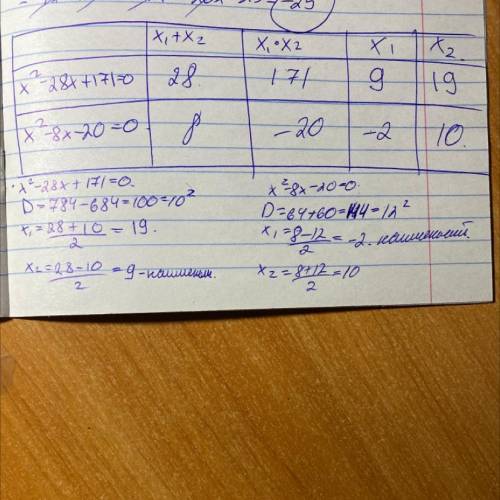 -25
x₁+x₂ x₁•x₂ x₁ x₂
x²-28x+171=0 28 171 9 19
x²-8x-20=0 8 -20 -2 10
x²-28x+171=0.
D=784-684=100=10²
x₁=28+10/2=19.
x₂=28-10/2=9-наименьш.
x²-8x-20=0.
D=64+60=144=12²
x₁=8-12/2=-2. наименьший.
x₂=8+12/2=10